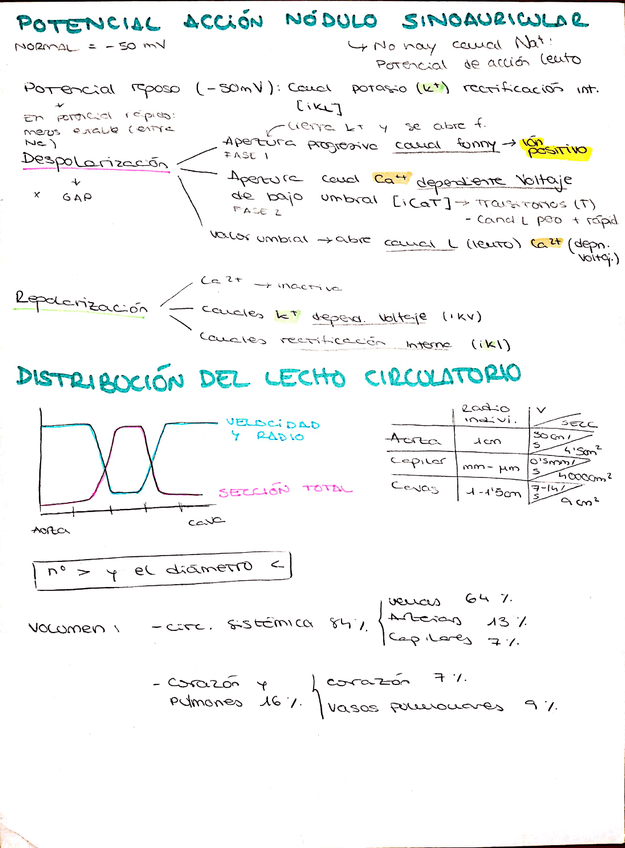 POTENCIAL ACCIÓN NÓDULO SINOAURICULAR
NORMAL = -50 mV
↳ No hay canal Na+:
Potencial de acción lento
Potencial reposo (-50mV): Canal potasio (K+) rectificación int.
[iK1]
En potencial rápido:
menos estable (entra
Na)
→ cierra K+ y se abre f.
Despolarización
↓
x GAP
Apertura progresiva canal funny → ión positivo
FASE 1
Apertura canal Ca2+ dependiente voltaje
de bajo umbral [iCaT] → Transitorios (T)
FASE 2
- Canal L peo + rápid
Valor umbral → abre canal L (lento) Ca2+ (depn. voltaj.)
Repolarización
Ca2+ → inactiva
Canales K+ depend. voltaje (iKV)
Canales rectificación interna (iK1)
DISTRIBUCIÓN DEL LECHO CIRCULATORIO
VELOCIDAD
Y RADIO
SECCIÓN TOTAL
Aorta
cava
Radio indivi. V / SECC
Aorta 1cm 50cm/s 4'5cm²
Capilar mm-μm 0'5mm/s 4000cm²
Cavas 1-1'5cm 7-14/s 9cm²
nº > y el diámetro <
Volumen:
- Circ. sistémica 84%
venas 64%
Arterias 13%
Capilares 7%
- Corazón y
pulmones 16%
corazón 7%
vasos pulmonares 9%